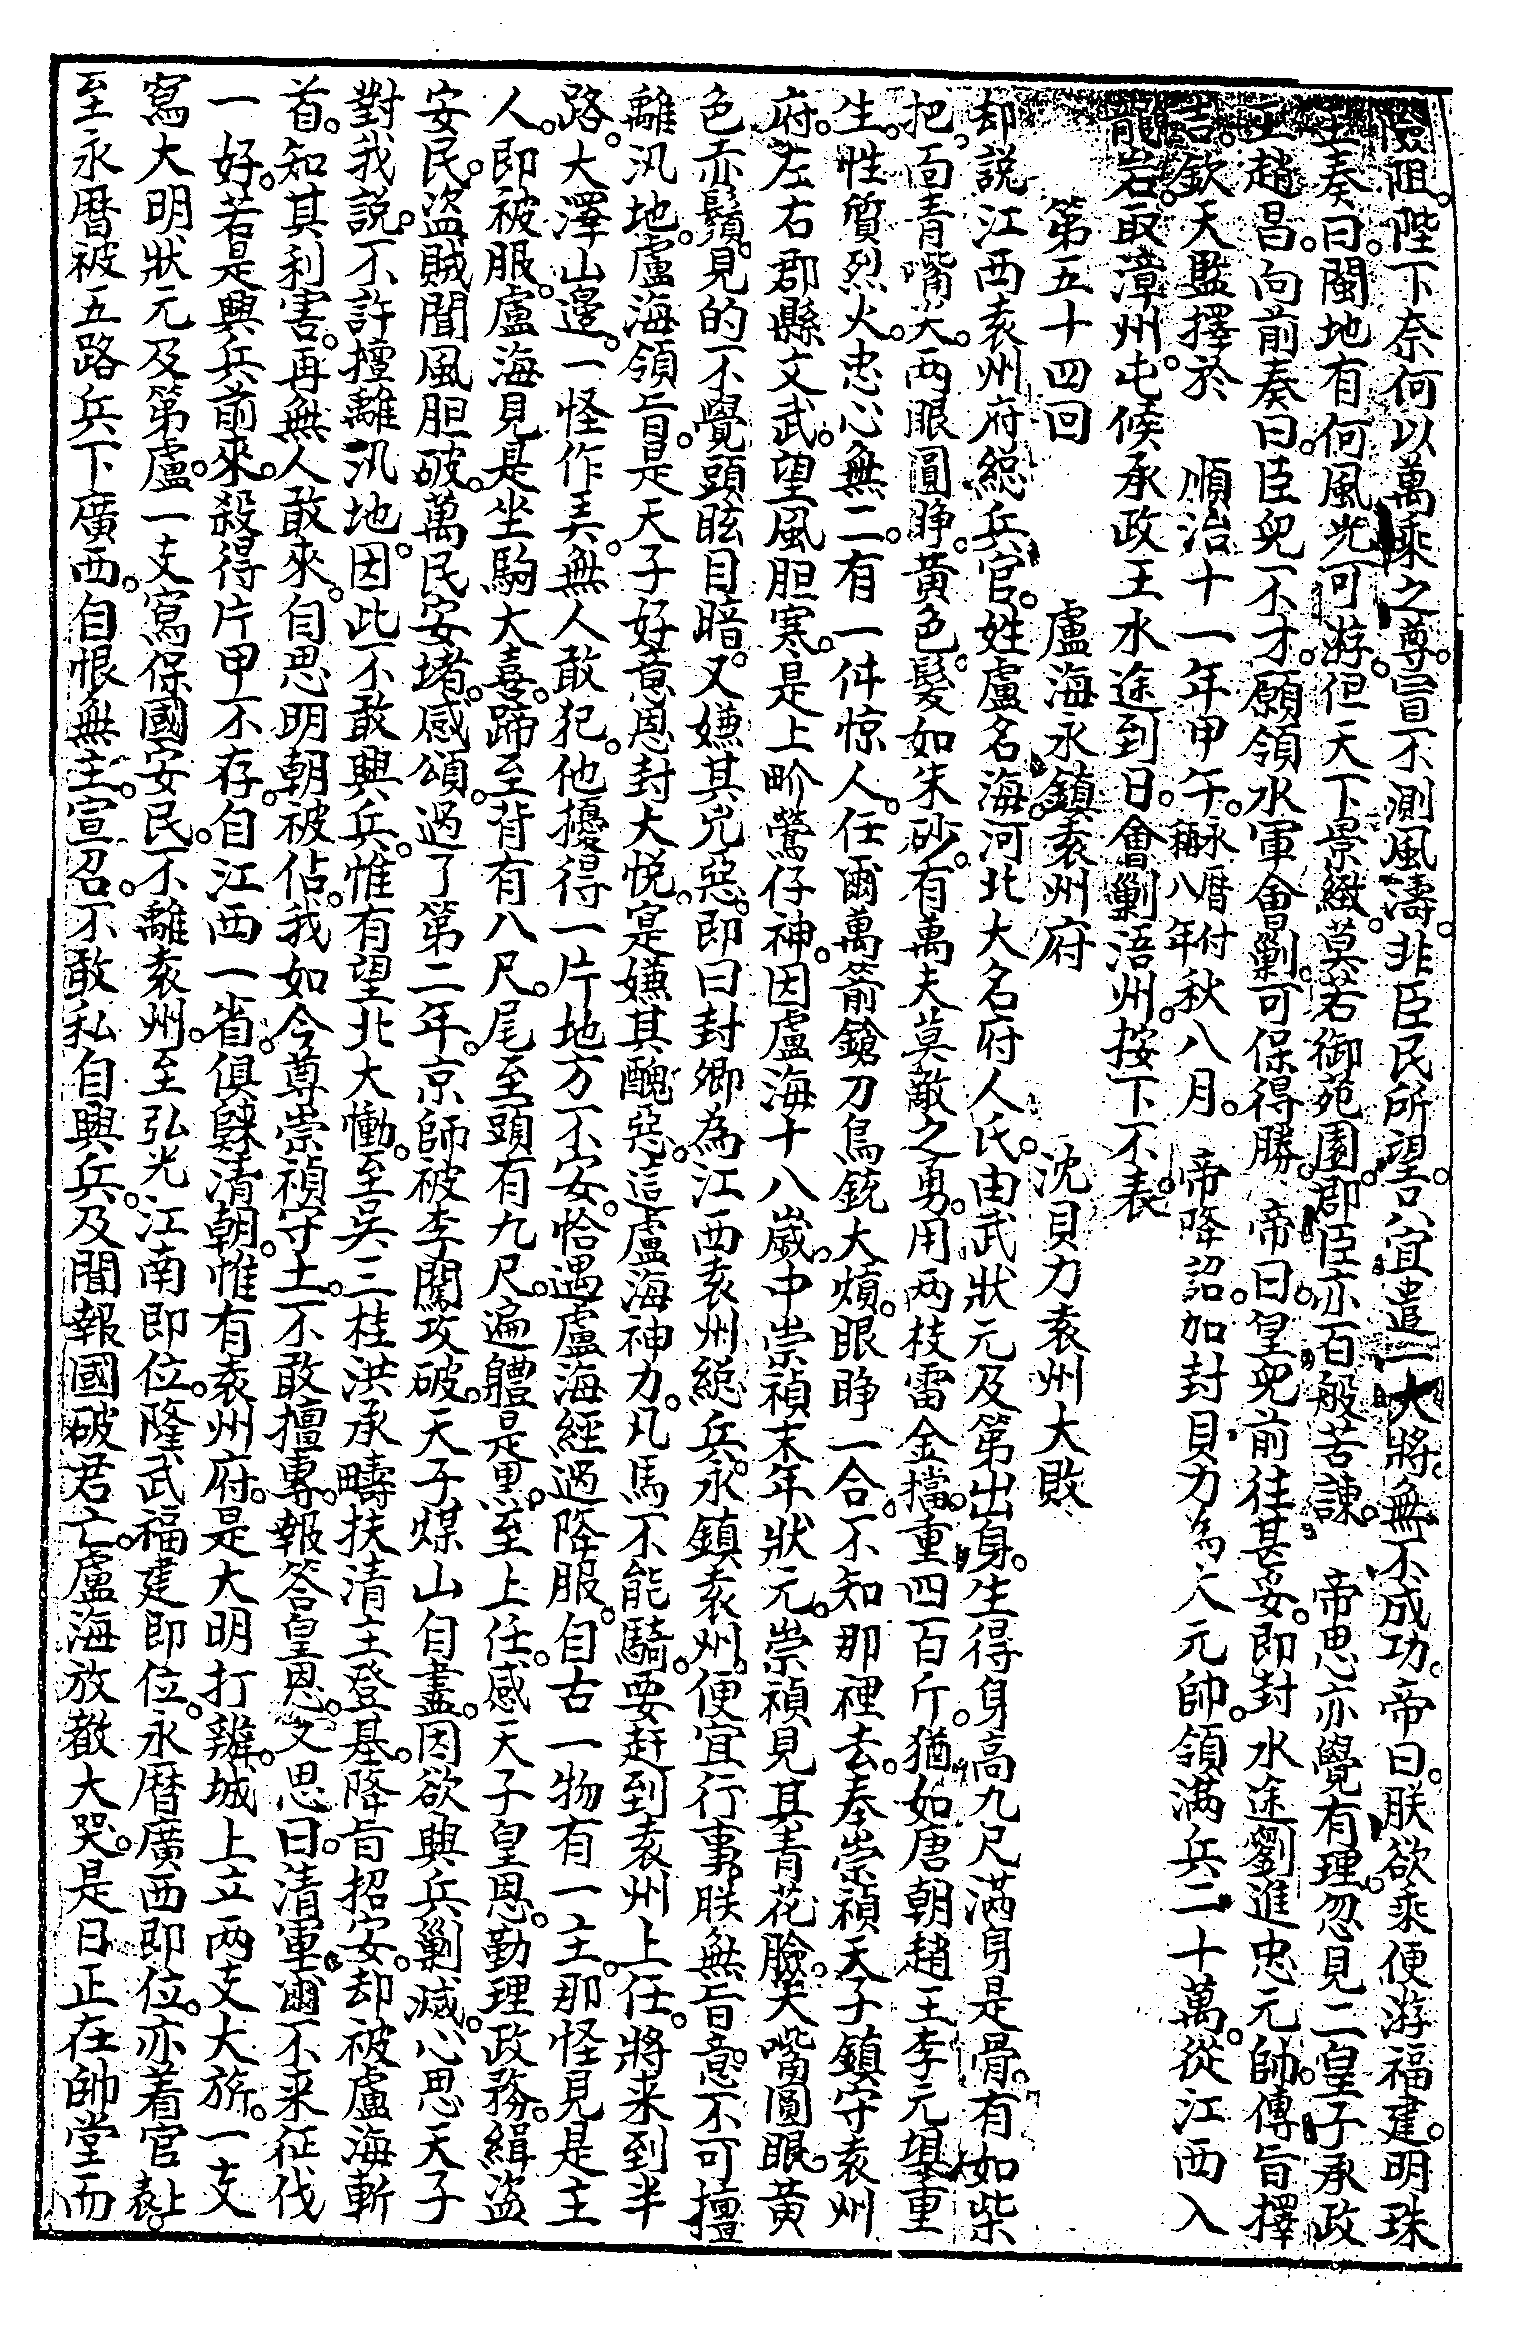 險阻。陛下奈何以萬乘之尊。冒不測風濤。非臣民所望。只宜遣一大將。無不成功。帝曰。朕欲乘便游福建。明珠
奏曰。閩地有何風光可游。但天下景緻。莫若御苑園。群臣亦百般苦諫。帝思亦覺有理。忽見二皇子承政
王趙昌。向前奏曰。臣兒不才。願領水軍會剿。可保得勝。帝曰。皇兒前往甚妥。即封水途劉進忠元帥。傳旨擇
吉。欽天監擇於順治十一年甲午。稱永曆八年附秋八月。帝降詔。加封貝力為大元帥。領滿兵二十萬。從江西入
龍岩。取漳州屯候承政王水途到日。會剿浯州。按下不表。
第五十四回 盧海永鎮袁州府 沈貝力袁州大敗
却說江西袁州府総兵官。姓盧名海。河北大名府人氏。由武狀元及第出身。生得身高九尺。滿身是骨。有如柴
把。面青嘴尖。两眼圓睁。黃色髮如朱砂。有萬夫莫敵之勇。用两枝雷金擋。重四百斤。猶如唐朝趙王李元埧重
生。性質烈火。忠心無二。有一件惊人。任爾萬箭鎗刀鳥銃大熕。眼睁一合。不知那裡去。奉崇禎天子鎮守袁州
府。左右郡縣文武。望風胆寒。是上畍鶯仔神。因盧海十八嵗。中崇禎末年狀元。崇禎見其青花臉。尖嘴圓眼。黃
色赤鬚。見的不覺頭眩目暗。又嫌其兇惡。即曰封卿為江西袁州総兵。永鎮袁州。便宜行事。朕無旨意。不可擅
離汛地。盧海領旨。是天子好意恩封大悅。寔嫌其醜惡。這盧海神力。凡馬不能騎。要赶到袁州上任。將来到半
路。大澤山邊。一怪作弄。無人敢犯。他擾得一片地方不安。恰遇盧海經過降服。自古一物有一主。那怪見是主
人。即被服。盧海見是坐駒大喜。蹄至背有八尺。尾至頭有九尺。遍軆是黑。至上任。感天子皇恩。勤理政務。緝盜
安民。盜賊聞風胆破。萬民安堵。感頌。過了第二年。京師破李闖攻破。天子煤山自盡。因欲興兵剿滅。心思天子
對我說。不許擅離汛地。因此不敢興兵。惟有望北大慟。至吳三桂洪承疇扶清主登基。降旨招安。却被盧海斬
首。知其利害。再無人敢來。自思明朝被佔。我如今尊崇禎守土。不敢擅專。報答皇恩。又思曰。清軍爾不来征伐
一好。若是興兵前來。殺得片甲不存。自江西一省。俱歸清朝。惟有袁州府。是大明打辦。城上立两支大旂。一支
寫大明狀元及第盧。一支寫保國安民。不離袁州。至弘光江南即位。隆武福建即位。永曆廣西即位。亦着官上表。
至永曆被五路兵下廣西。自恨無主。宣召。不敢私自興兵。及聞報國破君亡。盧海放聲大哭。是日正在帥堂而